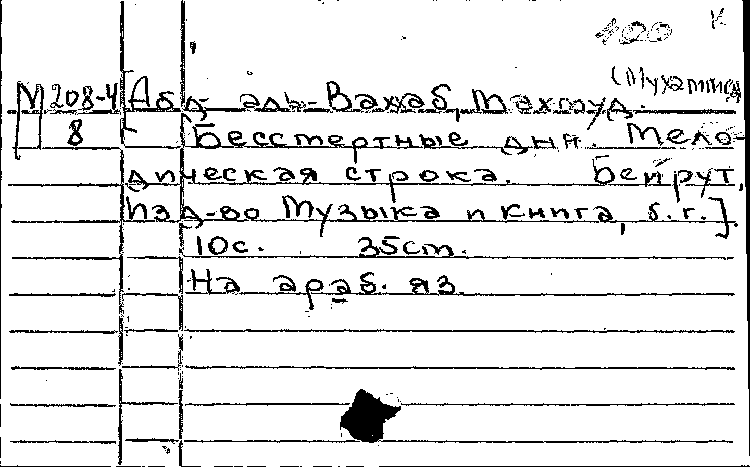 400 К
(Мухаммед)
М 208-4 [Абд аль-Ваххаб, Махмуд.
8 Бессмертные дня. Мело-
дическая строка. Бейрут,
Изд-во Музыка и книга, б.г.].
10с. 35см.
На араб. яз.